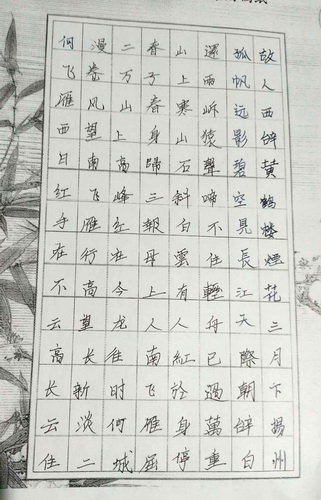 故人西辞黄鹤楼煙花三月下揚州
孤帆远影碧空見長江天際朝辞白
還两岍猿聲啼不住輕舟已過萬重
山上寒山石斜白雲有人紅於身停
春子春身歸三報母上人南飞雁屈
二万山上高峰红在今龙住时何城
漫卷风望南飞雁行高望长新淡二
何飞雁西日红手在不云高长云住